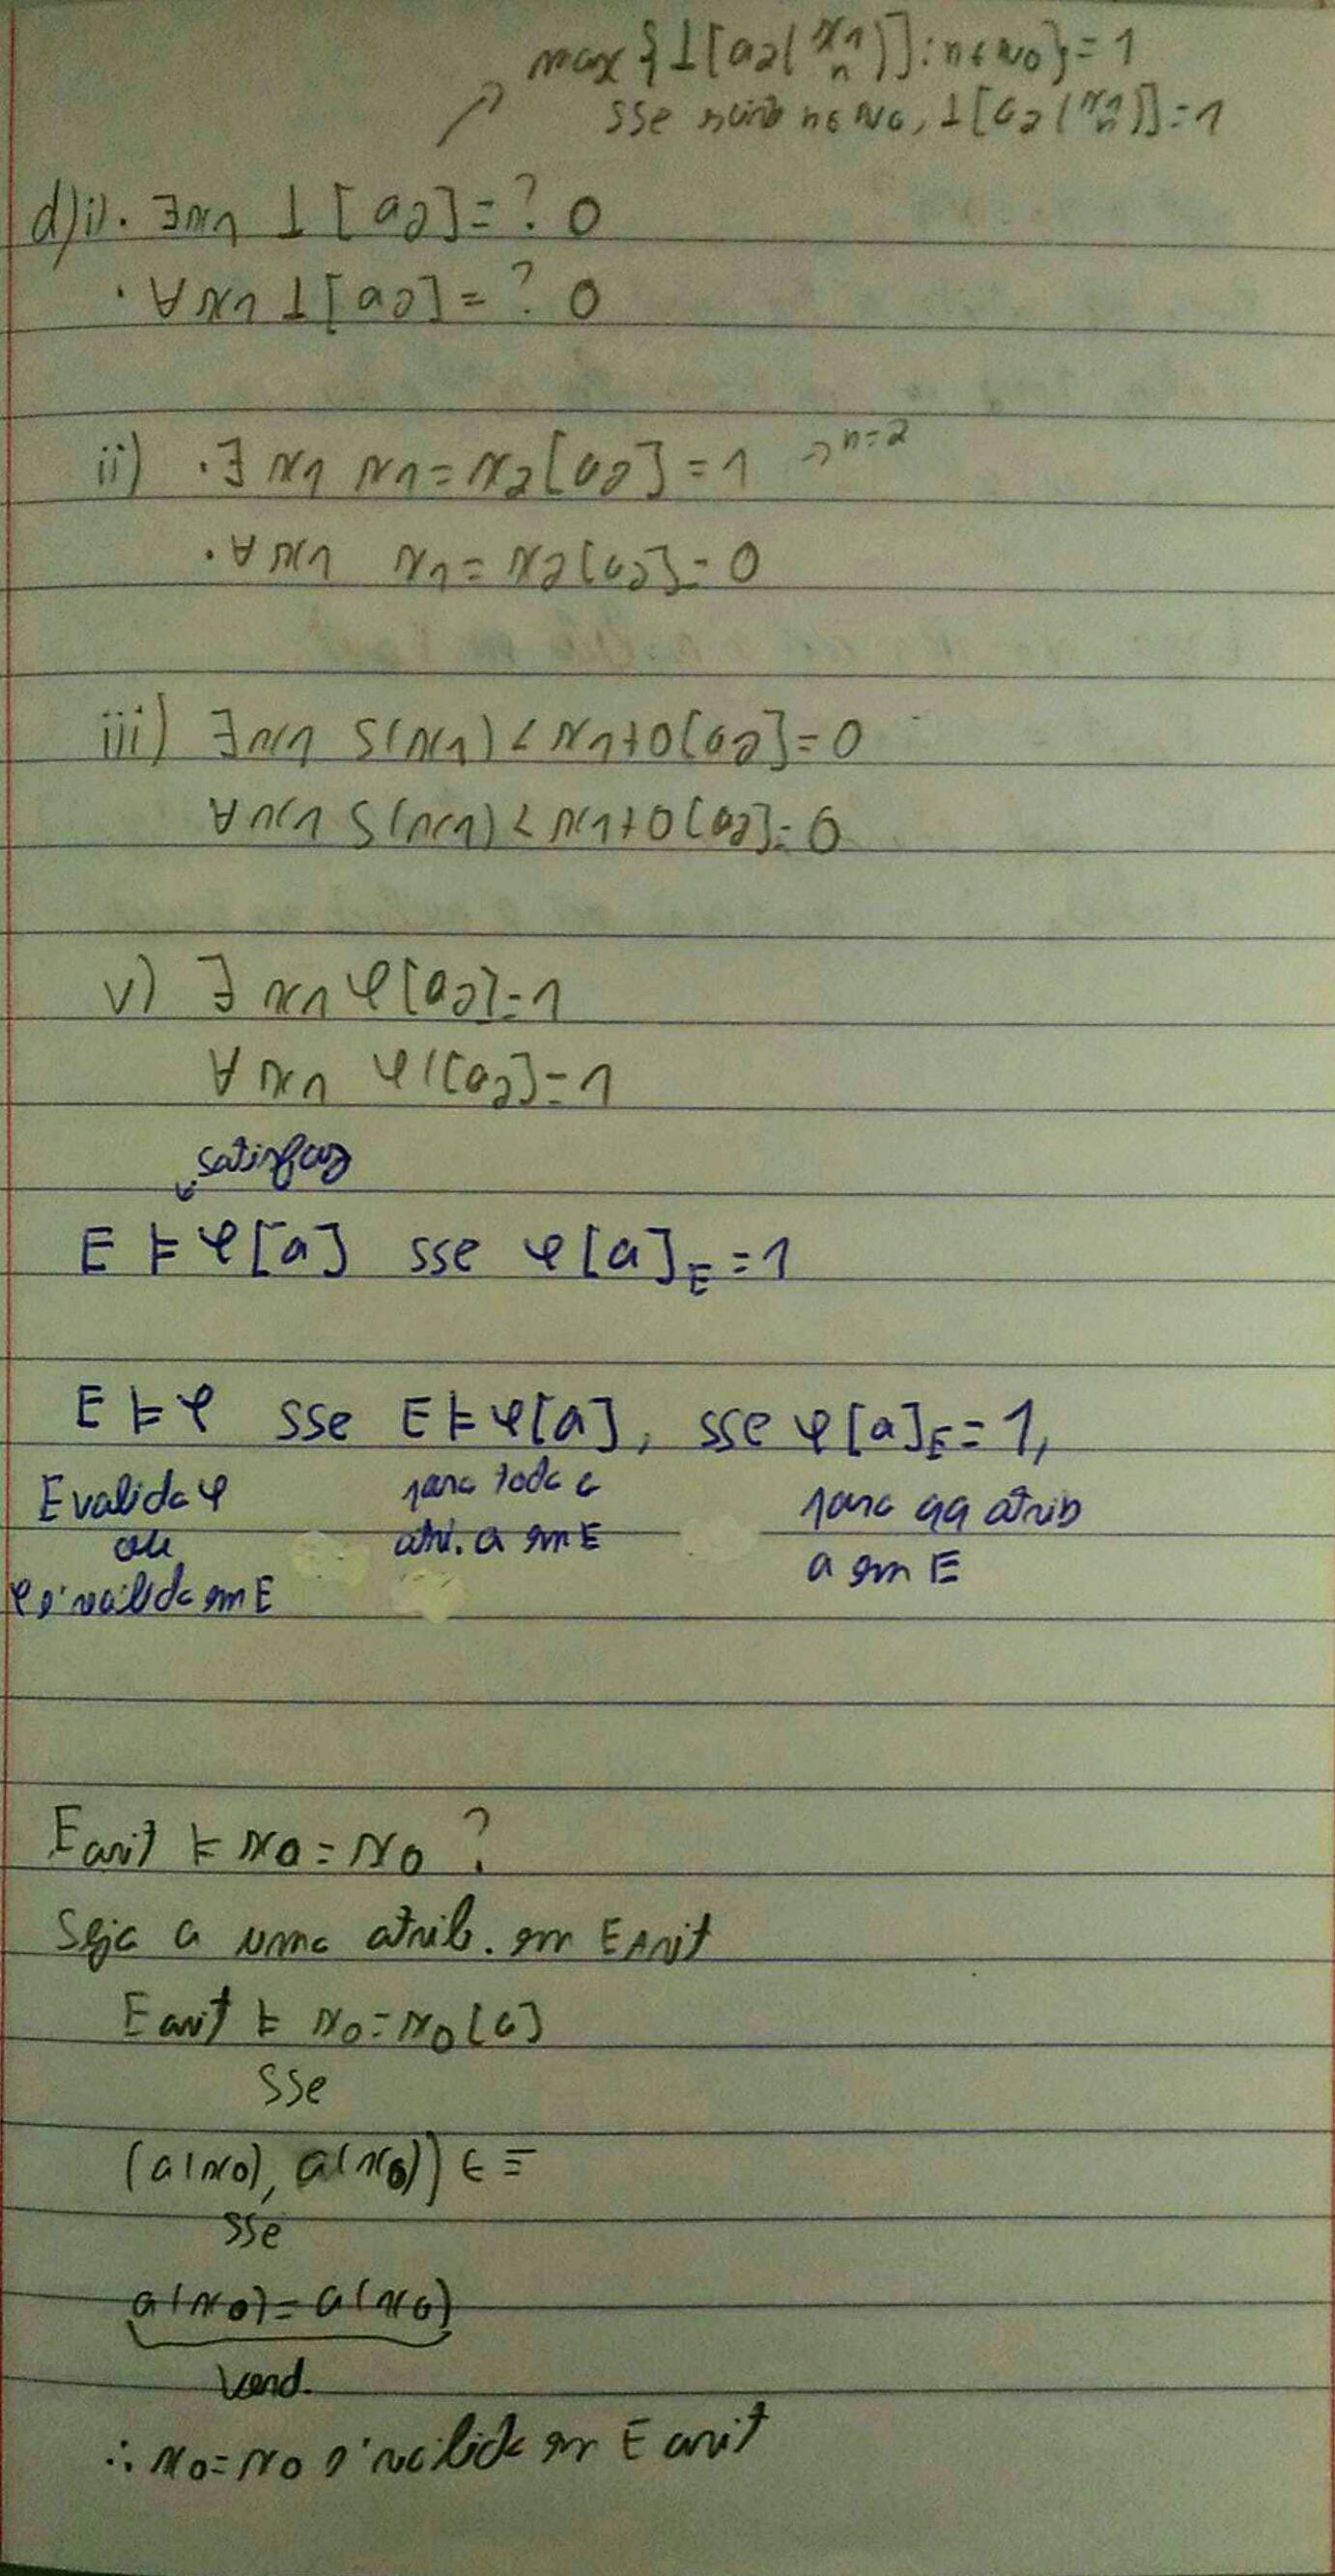 max {⊥[a2(x1 n)]: n∈N0} = 1
sse n∈N0, ⊥[a2(x1 n)] = 1
d)i). ∃x1 ⊥[a2] = ? 0
. ∀x1 ⊥[a2] = ? 0
ii) . ∃x1 x1=x2[a2] = 1 → n=2
. ∀x1 x1=x2[a2] = 0
iii) ∃x1 S(x1) < x1+0[a2] = 0
∀x1 S(x1) < x1+0[a2] = 0
v) ∃x1 φ[a2] = 1
∀x1 φ[a2] = 1
satisfaz
E ⊨ φ[a] sse φ[a]E = 1
E ⊨ φ sse E ⊨ φ[a], sse φ[a]E = 1,
E valida φ para toda a para qq atrib
ou atri. a em E a em E
φ é válida em E
E arit ⊨ x0 = x0 ?
Seja a uma atrib. em E Arit
E arit ⊨ x0 = x0 [a]
sse
(a(x0), a(x0)) ∈ =
sse
a(x0) = a(x0)
Verd.
∴ x0 = x0 é válida em E arit